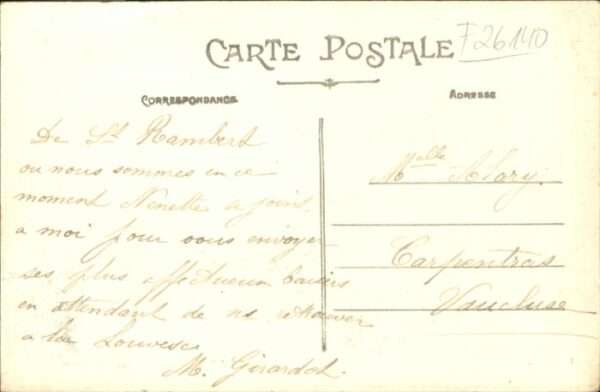 CARTE POSTALE
F 26140
CORRESPONDANCE
ADRESSE
De St Rambert
ou nous sommes en ce
moment Ninette a joins
a moi pour vous envoyer
ses plus affectueux baisers
en attendant de ns retrouver
a la Louvesc
M. Girardot.
Melle Alary.
Carpentras
Vaucluse